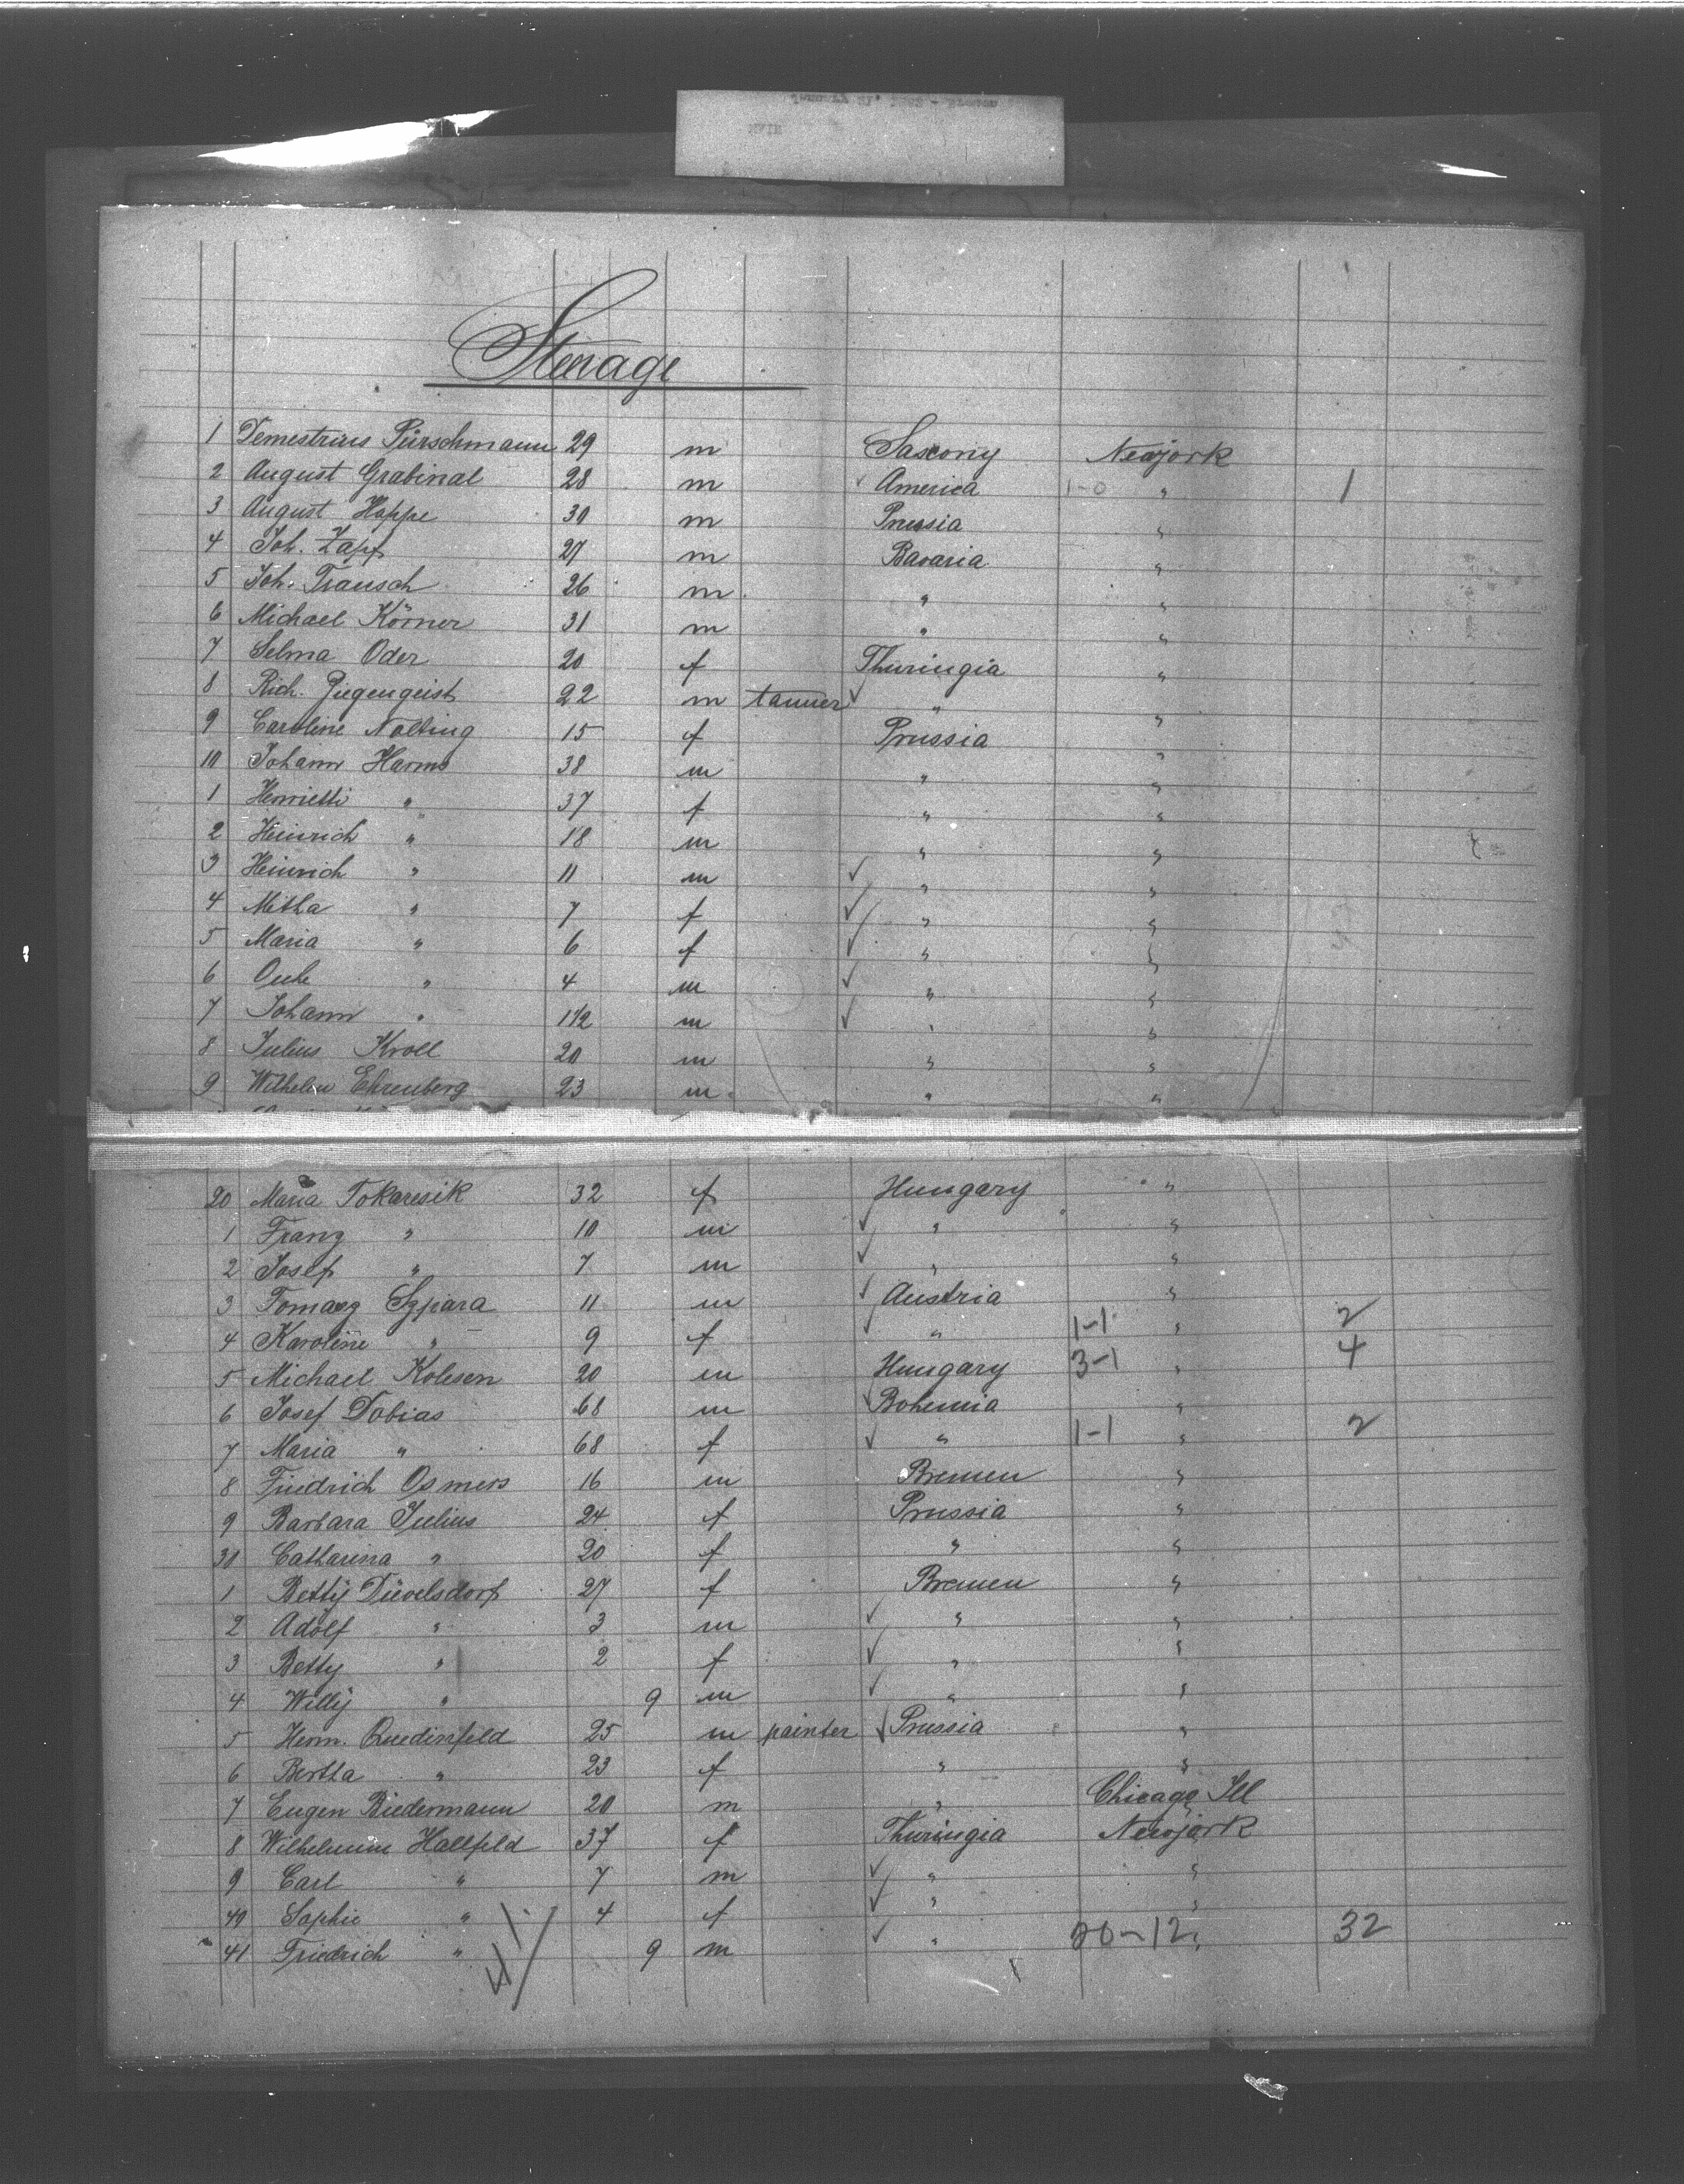 Steerage
1 Demestrius Pürschmann 29 m Saxony Newjork
2 August Grabinal 28 m America 1-0 " 1
3 August Hoppe 30 m Prussia "
4 Joh. Zapf 27 m Bavaria "
5 Joh. Trausch 26 m " "
6 Michael Körner 31 m " "
7 Selma Oder 20 f Thuringia "
8 Rich. Ziegengeist 22 m tanner " "
9 Caroline Nolting 15 f Prussia "
10 Johann Harms 38 m " "
1 Henrietti " 37 f " "
2 Heinrich " 18 m " "
3 Heinrich " 11 m " "
4 Metha " 7 f " "
5 Maria " 6 f " "
6 " 4 m " "
7 Johann " 1 1/2 m " "
8 Julius Kroll 20 m " "
9 Wilhelm Ehrenberg 23 m " "
20 Maria Tokaresik 32 f Hungary "
1 Franz " 10 m " "
2 Josef " 7 m " "
3 Tomasz Szpara 11 m Austria "
4 Karoline " 9 f " 1-1 " 2
5 Michael Kolesen 20 m Hungary 3-1 " 4
6 Josef Tobias 68 m Bohemia "
7 Maria " 68 f " 1-1 " 2
8 Friedrich Osmers 16 m Bremen "
9 Barbara Julius 24 f Prussia "
30 Catharina " 20 f " "
1 Betty Dievelsdorf 27 f Bremen "
2 Adolf " 3 m " "
3 Betty " 2 f " "
4 Willy " 9 m " "
5 Herm. Quedinfeld 25 m painter Prussia "
6 Bertha " 23 f " "
7 Eugen Biedermann 20 m " Chicago Ill
8 Wilhelmine Hallfeld 37 f Thuringia Newjork
9 Carl " 7 m " "
40 Sophie " 4 f " "
41 Friedrich " 9 m " 20-12 " 32